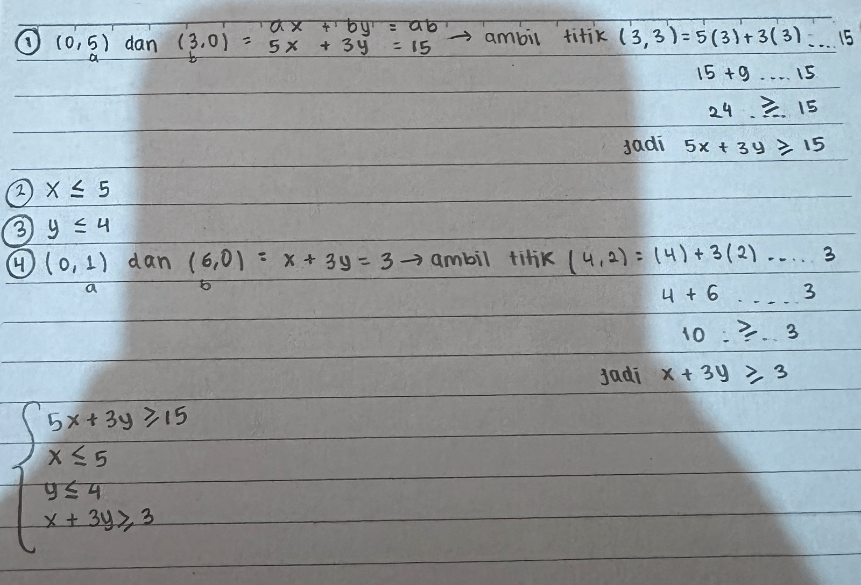 ax + by = ab
① (0,5) dan (3,0) = 5x + 3y = 15 → ambil titik (3,3) = 5(3)+3(3) .... 15
a b
15 + 9 .... 15
24 ..≥.. 15
Jadi 5x + 3y ≥ 15
② x ≤ 5
③ y ≤ 4
④ (0,1) dan (6,0) = x + 3y = 3 → ambil titik (4,2) = (4) + 3(2) ..... 3
a b
4 + 6 ..... 3
10 ..≥.. 3
Jadi x + 3y ≥ 3
5x + 3y ≥ 15
x ≤ 5
y ≤ 4
x + 3y ≥ 3